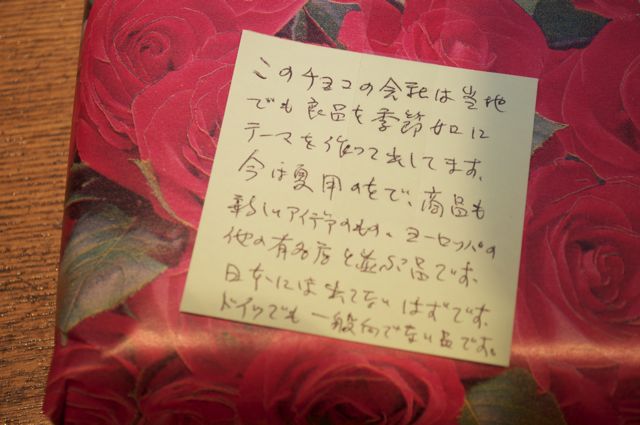 このチョコの会社は当地
でも良品を季節如に
テーマを作って出してます。
今は夏用のをで、商品も
新しいアイデアのもの、ヨーロッパの
他の有名店と並ぶ品です。
日本には出てないはずです。
ドイツでも一般向でない品です。